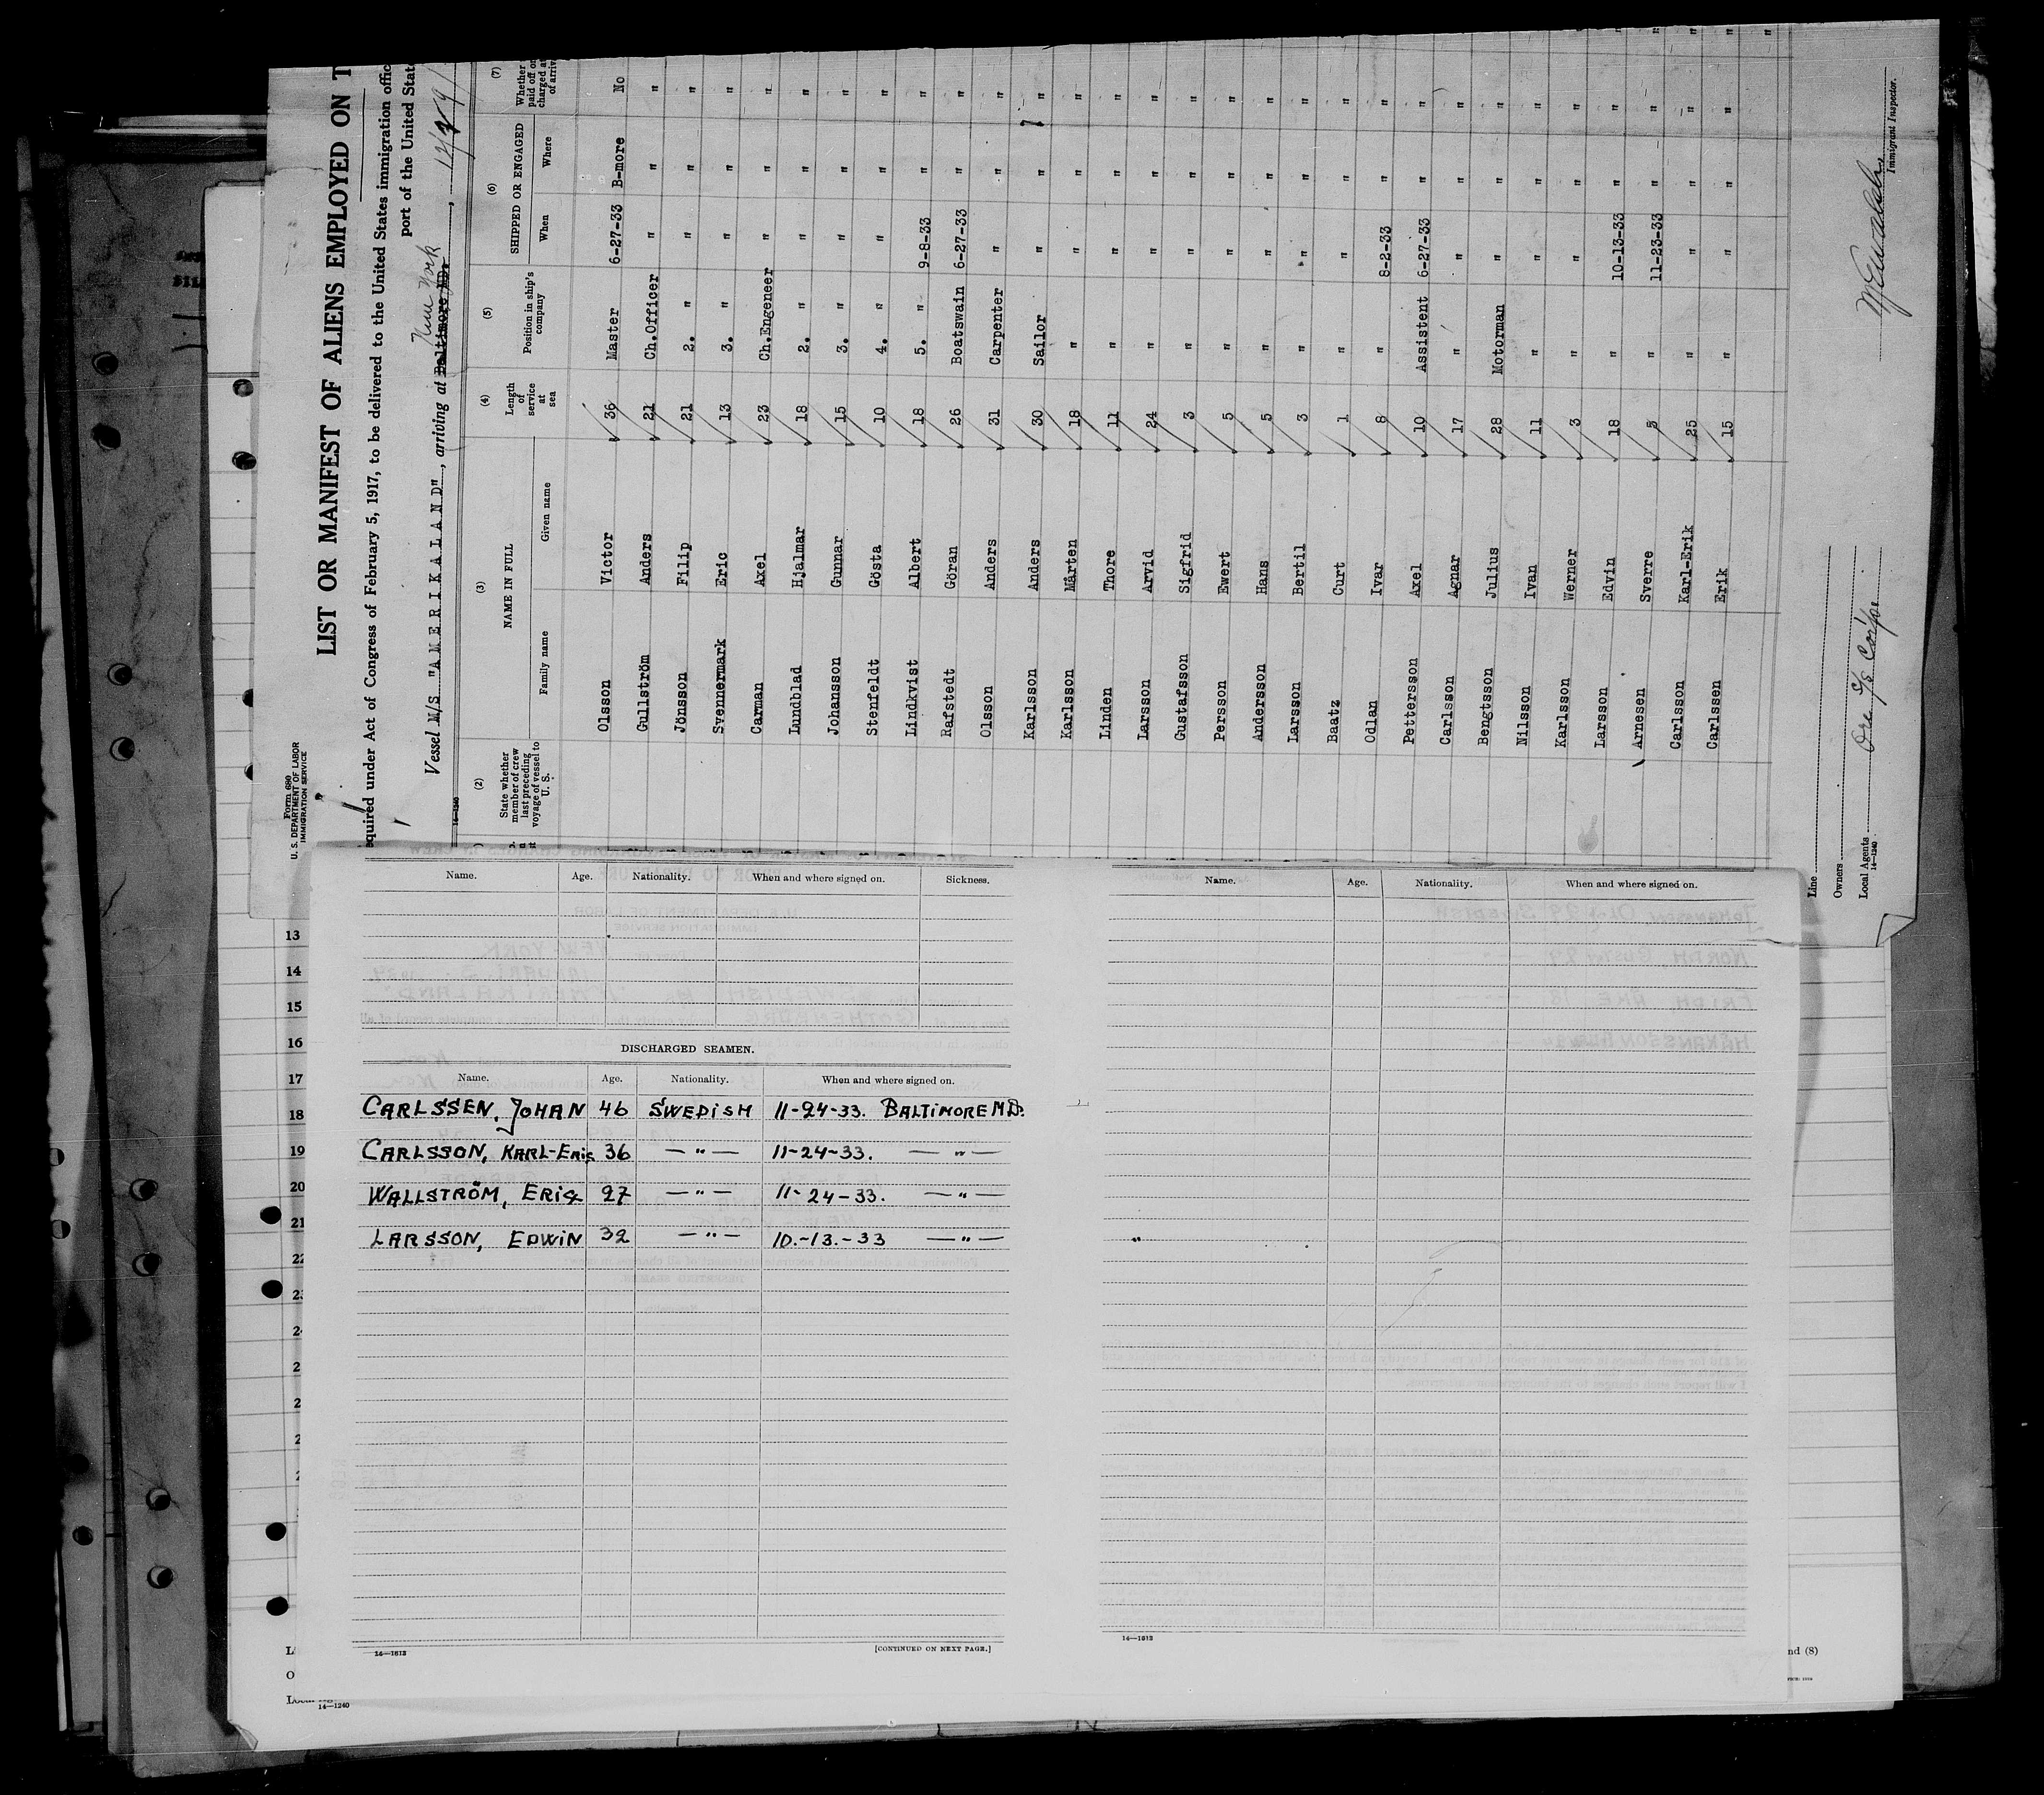 Form 680
U. S. DEPARTMENT OF LABOR
IMMIGRATION SERVICE
LIST OR MANIFEST OF ALIENS EMPLOYED ON T
equired under Act of Congress of February 5, 1917, to be delivered to the United States immigration offic
port of the United Stat
Vessel M/S "AMERIKALAND", arriving at Baltimore, MD. New York
14—1240
(2) (3) (4) (5) (6) (7)
State whether member of crew last preceding voyage of vessel to U. S.
NAME IN FULL
Family name Given name
Length of service at sea
Position in ship's company
SHIPPED OR ENGAGED
When Where
Whether paid off or charged at of arriv
Olsson Victor 36 Master 6-27-33 B-more No
Gullström Anders 21 Ch.Officer " " "
Jönsson Filip 21 2. " " " "
Svennermark Eric 13 3. " " " "
Carman Axel 23 Ch.Engeneer " " "
Lundblad Hjalmar 18 2. " " " "
Johansson Gunnar 15 3. " " " "
Stenfeldt Gösta 10 4. " " " "
Lindkvist Albert 18 5. " 9-8-33 " "
Rafstedt Göran 26 Boatswain 6-27-33 " "
Olsson Anders 31 Carpenter " " "
Karlsson Anders 30 Sailor " " "
Karlsson Mårten 18 " " " "
Linden Thore 11 " " " "
Larsson Arvid 24 " " " "
Gustafsson Sigfrid 3 " " " "
Persson Ewert 5 " " " "
Andersson Hans 5 " " " "
Larsson Bertil 3 " " " "
Baatz Curt 1 " " " "
Odlan Ivar 8 " 8-2-33 " "
Pettersson Axel 10 Assistent 6-27-33 " "
Carlsson Agnar 17 " " " "
Bengtsson Julius 28 Motorman " " "
Nilsson Ivan 11 " " " "
Karlsson Werner 3 " " " "
Larsson Edvin 18 " 10-13-33 " "
Arnesen Sverre 5 " 11-23-33 " "
Carlsson Karl-Erik 25 " " " "
Carlssen Erik 15 " " " "
Line
Owners
Local Agents Ore S/S Corp'n
14—1240
Immigrant Inspector.
Name. Age. Nationality. When and where signed on. Sickness.
13
14
15
16
17
18
19
20
21
22
23
DISCHARGED SEAMEN.
Name. Age. Nationality. When and where signed on.
CARLSSEN, JOHAN 46 SWEDISH 11-24-33. BALTIMORE MD.
CARLSSON, KARL-ERIC 36 —"— 11-24-33. —"—
WALLSTRÖM, ERIC 27 —"— 11-24-33. —"—
LARSSON, EDWIN 32 —"— 10.-13.-33 —"—
14—1813
[CONTINUED ON NEXT PAGE.]
Name. Age. Nationality. When and where signed on.
14—1813
nd (8)
14—1240